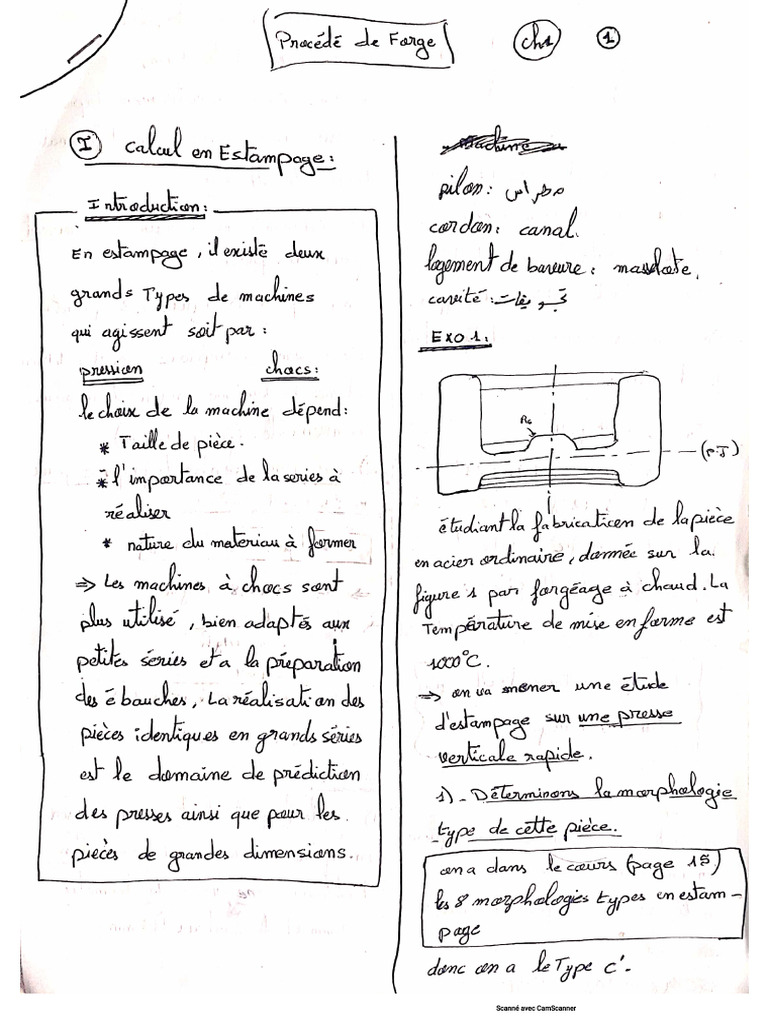 Procédé de Forge
ch1
1
I Calcul en Estampage:
Introduction:
En estampage, il existe deux
grands Types de machines
qui agissent soit par:
pression chocs:
le choix de la machine dépend:
* Taille de pièce.
* l'importance de la series à
réaliser
* nature du materiau à former
=> Les machines à chocs sont
plus utilisé, bien adaptés aux
petites séries et a la préparation
des ébauches, La réalisation des
pièces identiques en grands séries
est le domaine de prédiction
des presses ainsi que pour les
pièces de grandes dimensions.
Machine
pilon: مهراس
cordon: canal.
logement de bavure: masselote.
cavité: تجويفات
Exo 1:
R6
(P.J)
étudiant la fabrication de la pièce
en acier ordinaire, donnée sur la
figure 1 par forgéage à chaud. La
Température de mise en forme est
1000°C.
=> on va mener une étude
d'estampage sur une presse
verticale rapide.
1)- Déterminons la morphologie
type de cette pièce.
on a dans le cours (page 15)
les 8 morphologies types en estam-
page
donc on a le Type C'.
Scanné avec CamScanner